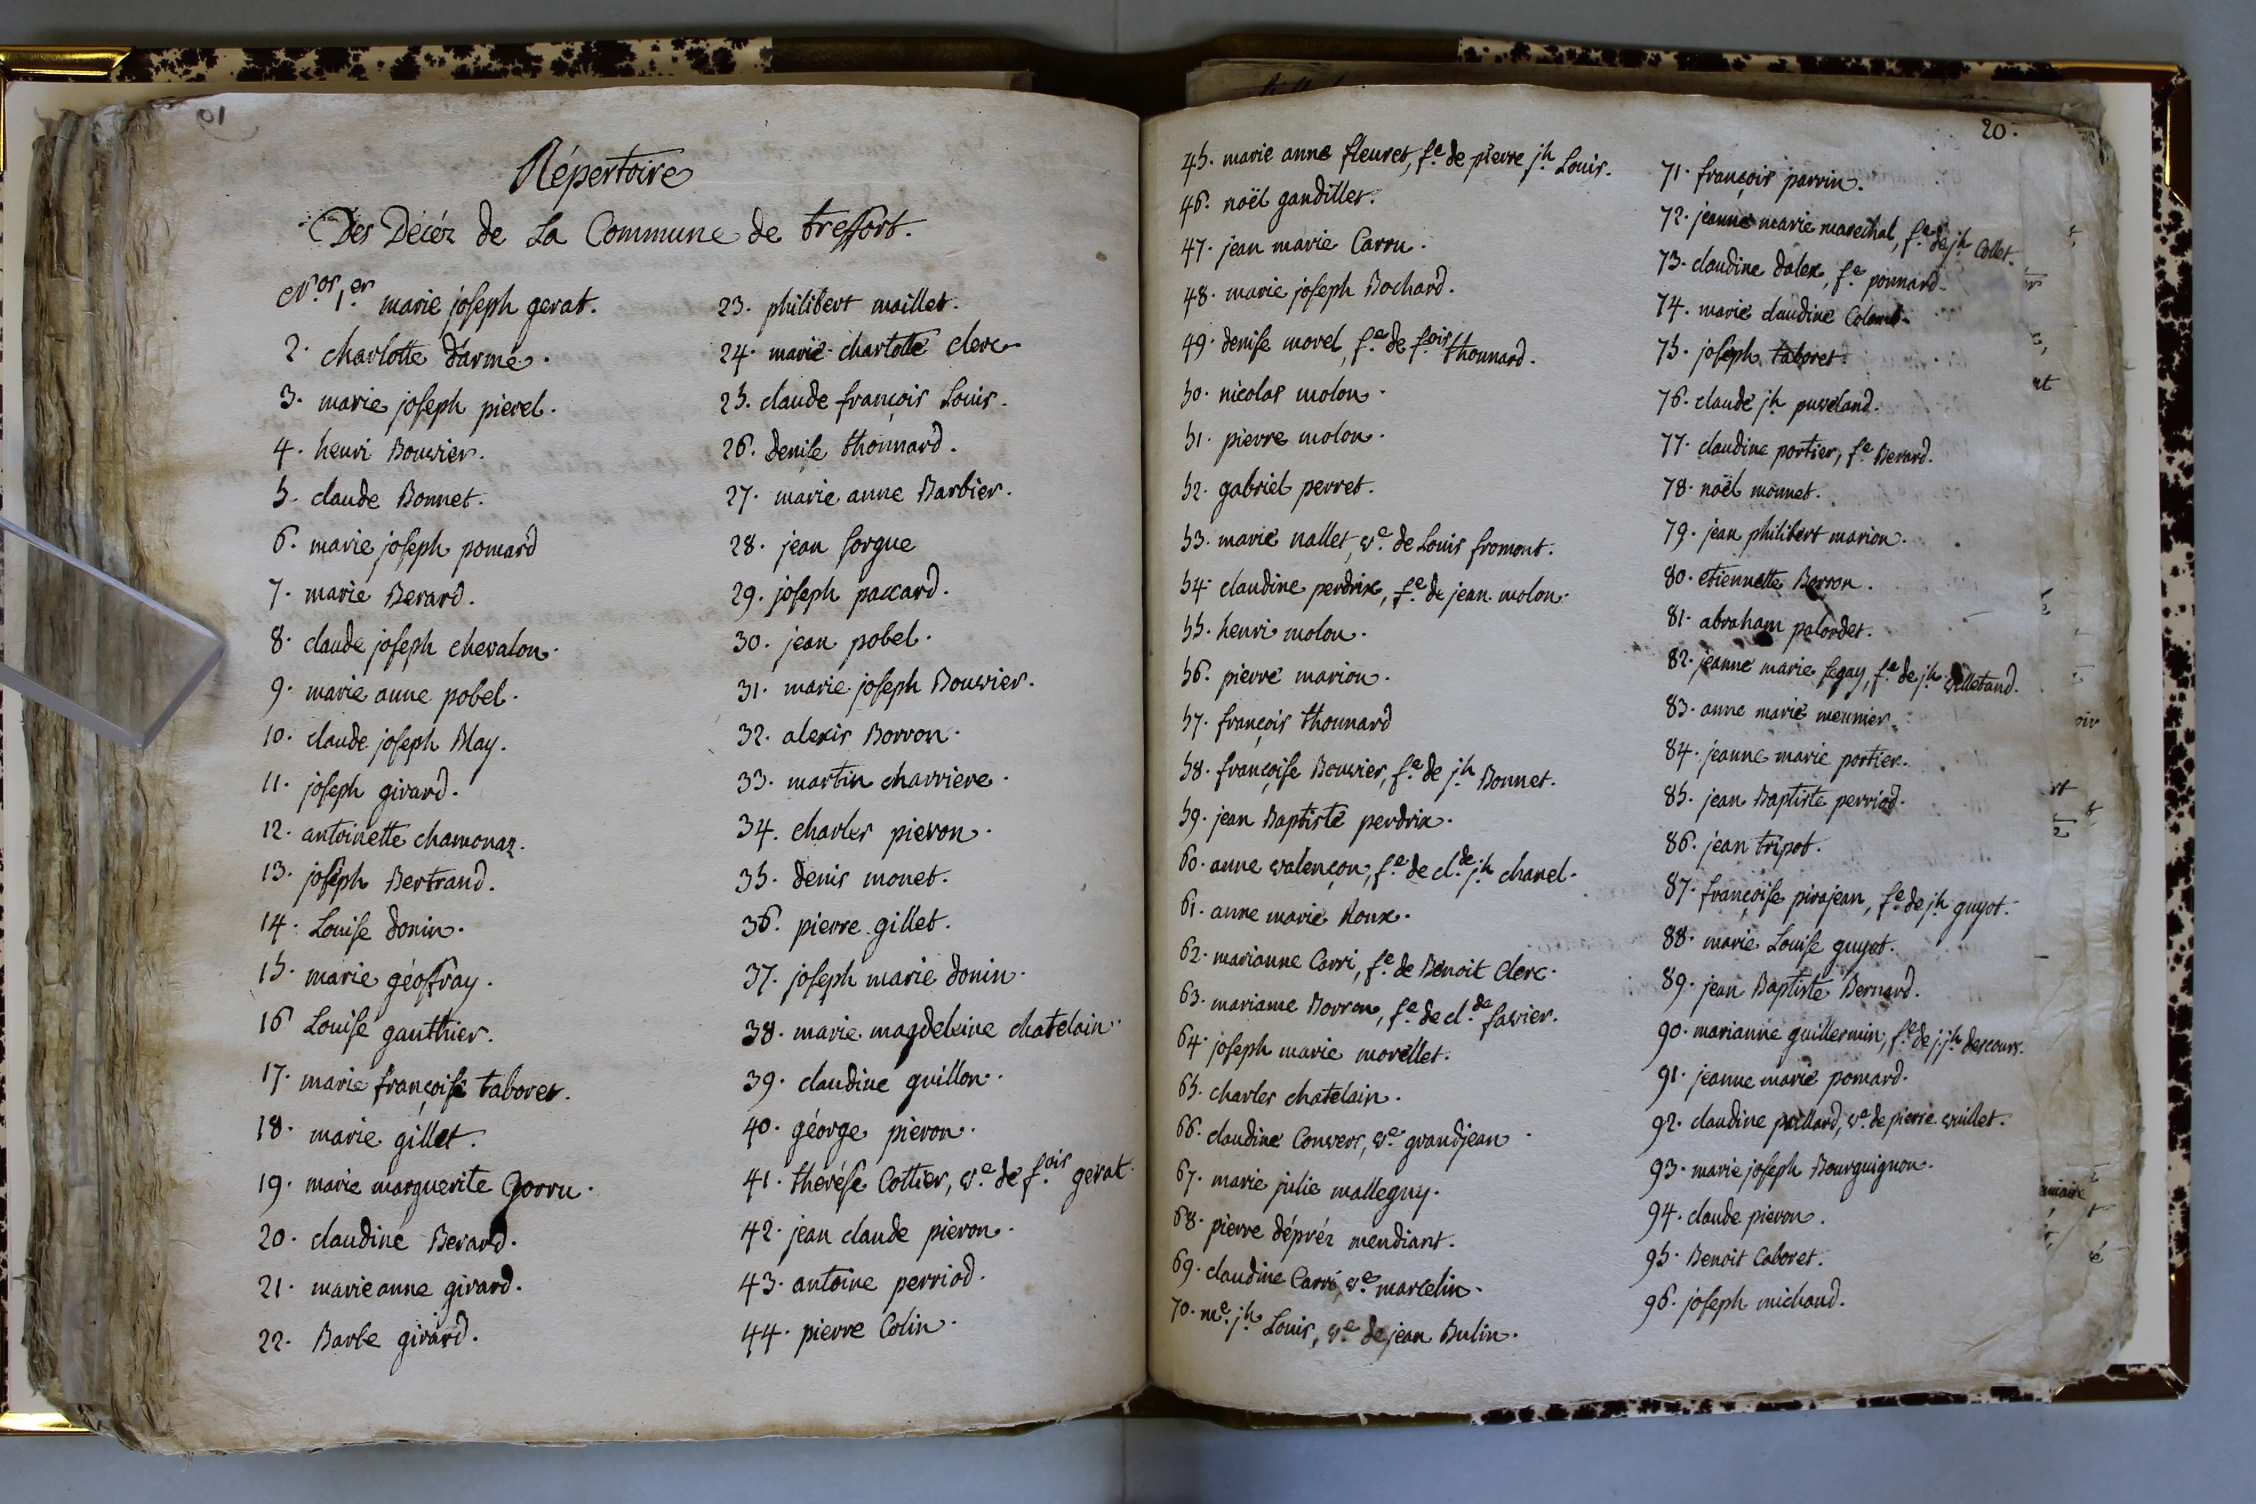 Répertoire
Des Décéz de La Commune de treffort.
N.os 1.er marie joseph gerat.
2. charlotte d'armé.
3. marie joseph pierel.
4. henri Bouvier.
5. claude Bonnet.
6. marie joseph pomard
7. marie Berard.
8. claude joseph chevalon.
9. marie anne pobel.
10. claude joseph Blay.
11. joseph girard.
12. antoinette chamonaz.
13. joseph Bertrand.
14. Louise donin.
15. marie géoffray.
16 Louise gauthier.
17. marie françoise taboret.
18. marie gillet.
19. marie marguerite Corru.
20. claudine Berard.
21. marie anne girard.
22. Barbe girard.
23. philibert maillet.
24. marie charlotte clerc
25. claude françois Louis.
26. denise thonnard.
27. marie anne Barbier.
28. jean sorgue
29. joseph paccard.
30. jean pobel.
31. marie joseph Bouvier.
32. alexis Borron.
33. martin charriere.
34. charles pieron.
35. denis monet.
36. pierre gillet.
37. joseph marie donin.
38. marie magdeleine chatelain.
39. claudine guillon.
40. géorge pieron.
41. therése Cottier, v.e de f.ois gerat
42. jean claude pieron.
43. antoine perriod.
44. pierre Colin.
20.
45. marie anne fleuret, f.e de pierre j.h Louis.
46. noël gandillet.
47. jean marie Carru.
48. marie joseph Bochard.
49. denise morel, f.e de f.ois thonnard.
50. nicolas molon.
51. pierre molon.
52. gabriel perret.
53. marie nallet, v.e de Louis fromont.
54. claudine perdrix, f.e de jean molon.
55. henri molon.
56. pierre marion.
57. françois thonnard
58. françoise Bouvier, f.e de j.h Bonnet.
59. jean Baptiste perdrix.
60. anne valençon, f.e de cl.de j.h chanel.
61. anne marie Roux.
62. marianne Carri, f.e de Benoit Clerc.
63. marianne Borron, f.e de cl.de favier.
64. joseph marie morellet.
65. charles chatelain.
66. claudine Convers, v.e grandjean
67. marie julie malleguy.
68. pierre dépréz mendiant.
69. claudine Carri, v.e marcelin.
70. m.e j.h Louis, v.e de jean Bulin.
71. françois parrin.
72. jeanne marie marechal, f.e de j.h Collet.
73. claudine dalex, f.e ponnard.
74. marie claudine Colomb.
75. joseph taboret.
76. claude j.h puveland.
77. claudine portier, f.e Berard.
78. noël monnet.
79. jean philibert marion.
80. etiennette Borron.
81. abraham palordet.
82. jeanne marie segay, f.e de j.h villetand.
83. anne marie meunier.
84. jeanne marie portier.
85. jean Baptiste perriod.
86. jean tripot.
87. françoise pirajean, f.e de j.h guyot.
88. marie Louise guyot.
89. jean Baptiste Bernard.
90. marianne guillermin, f.e de j. j.h descours.
91. jeanne marie pomard.
92. claudine paillard, v.e de pierre vuillet.
93. marie joseph Bourguignon.
94. claude pieron.
95. Benoit Caboret.
96. joseph michaud.